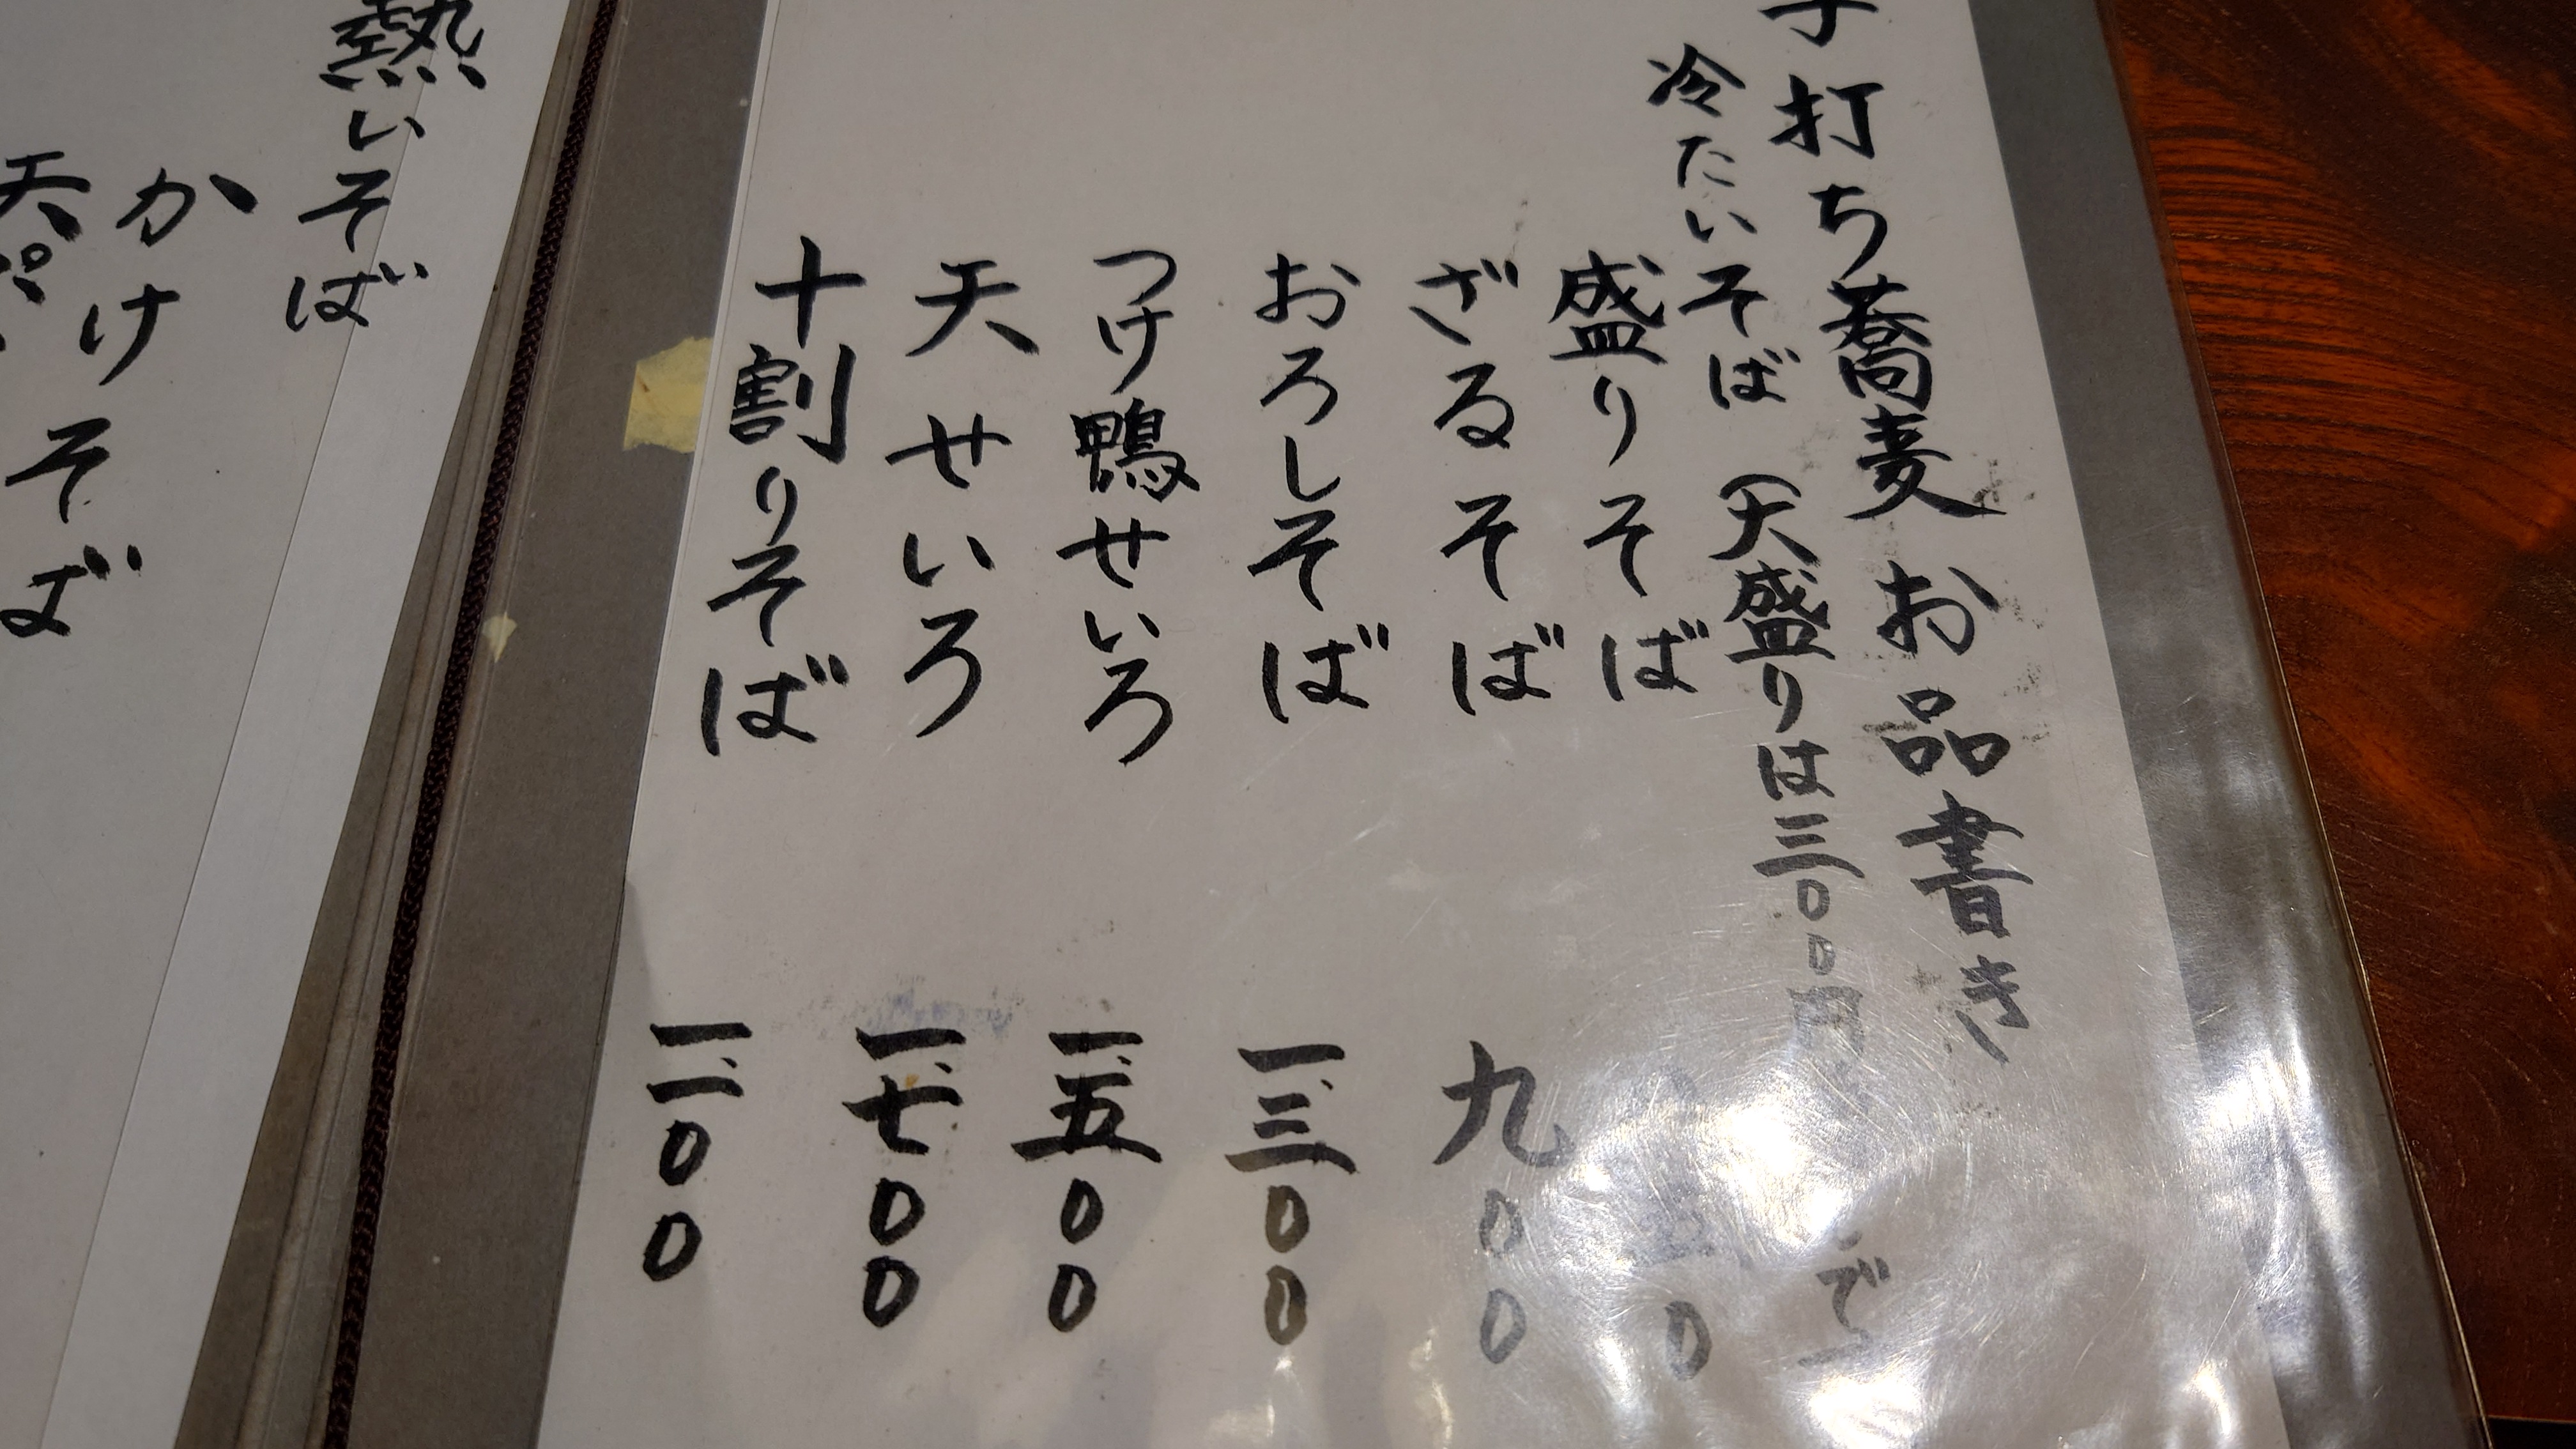 手打ち蕎麦 お品書き
冷たいそば （大盛りは三〇〇円
盛りそば
ざるそば 九〇〇
おろしそば 一、三〇〇
つけ鴨せいろ 一、五〇〇
天せいろ 一、七〇〇
十割りそば 一、一〇〇
熱いそば
かけそば
天ぷ